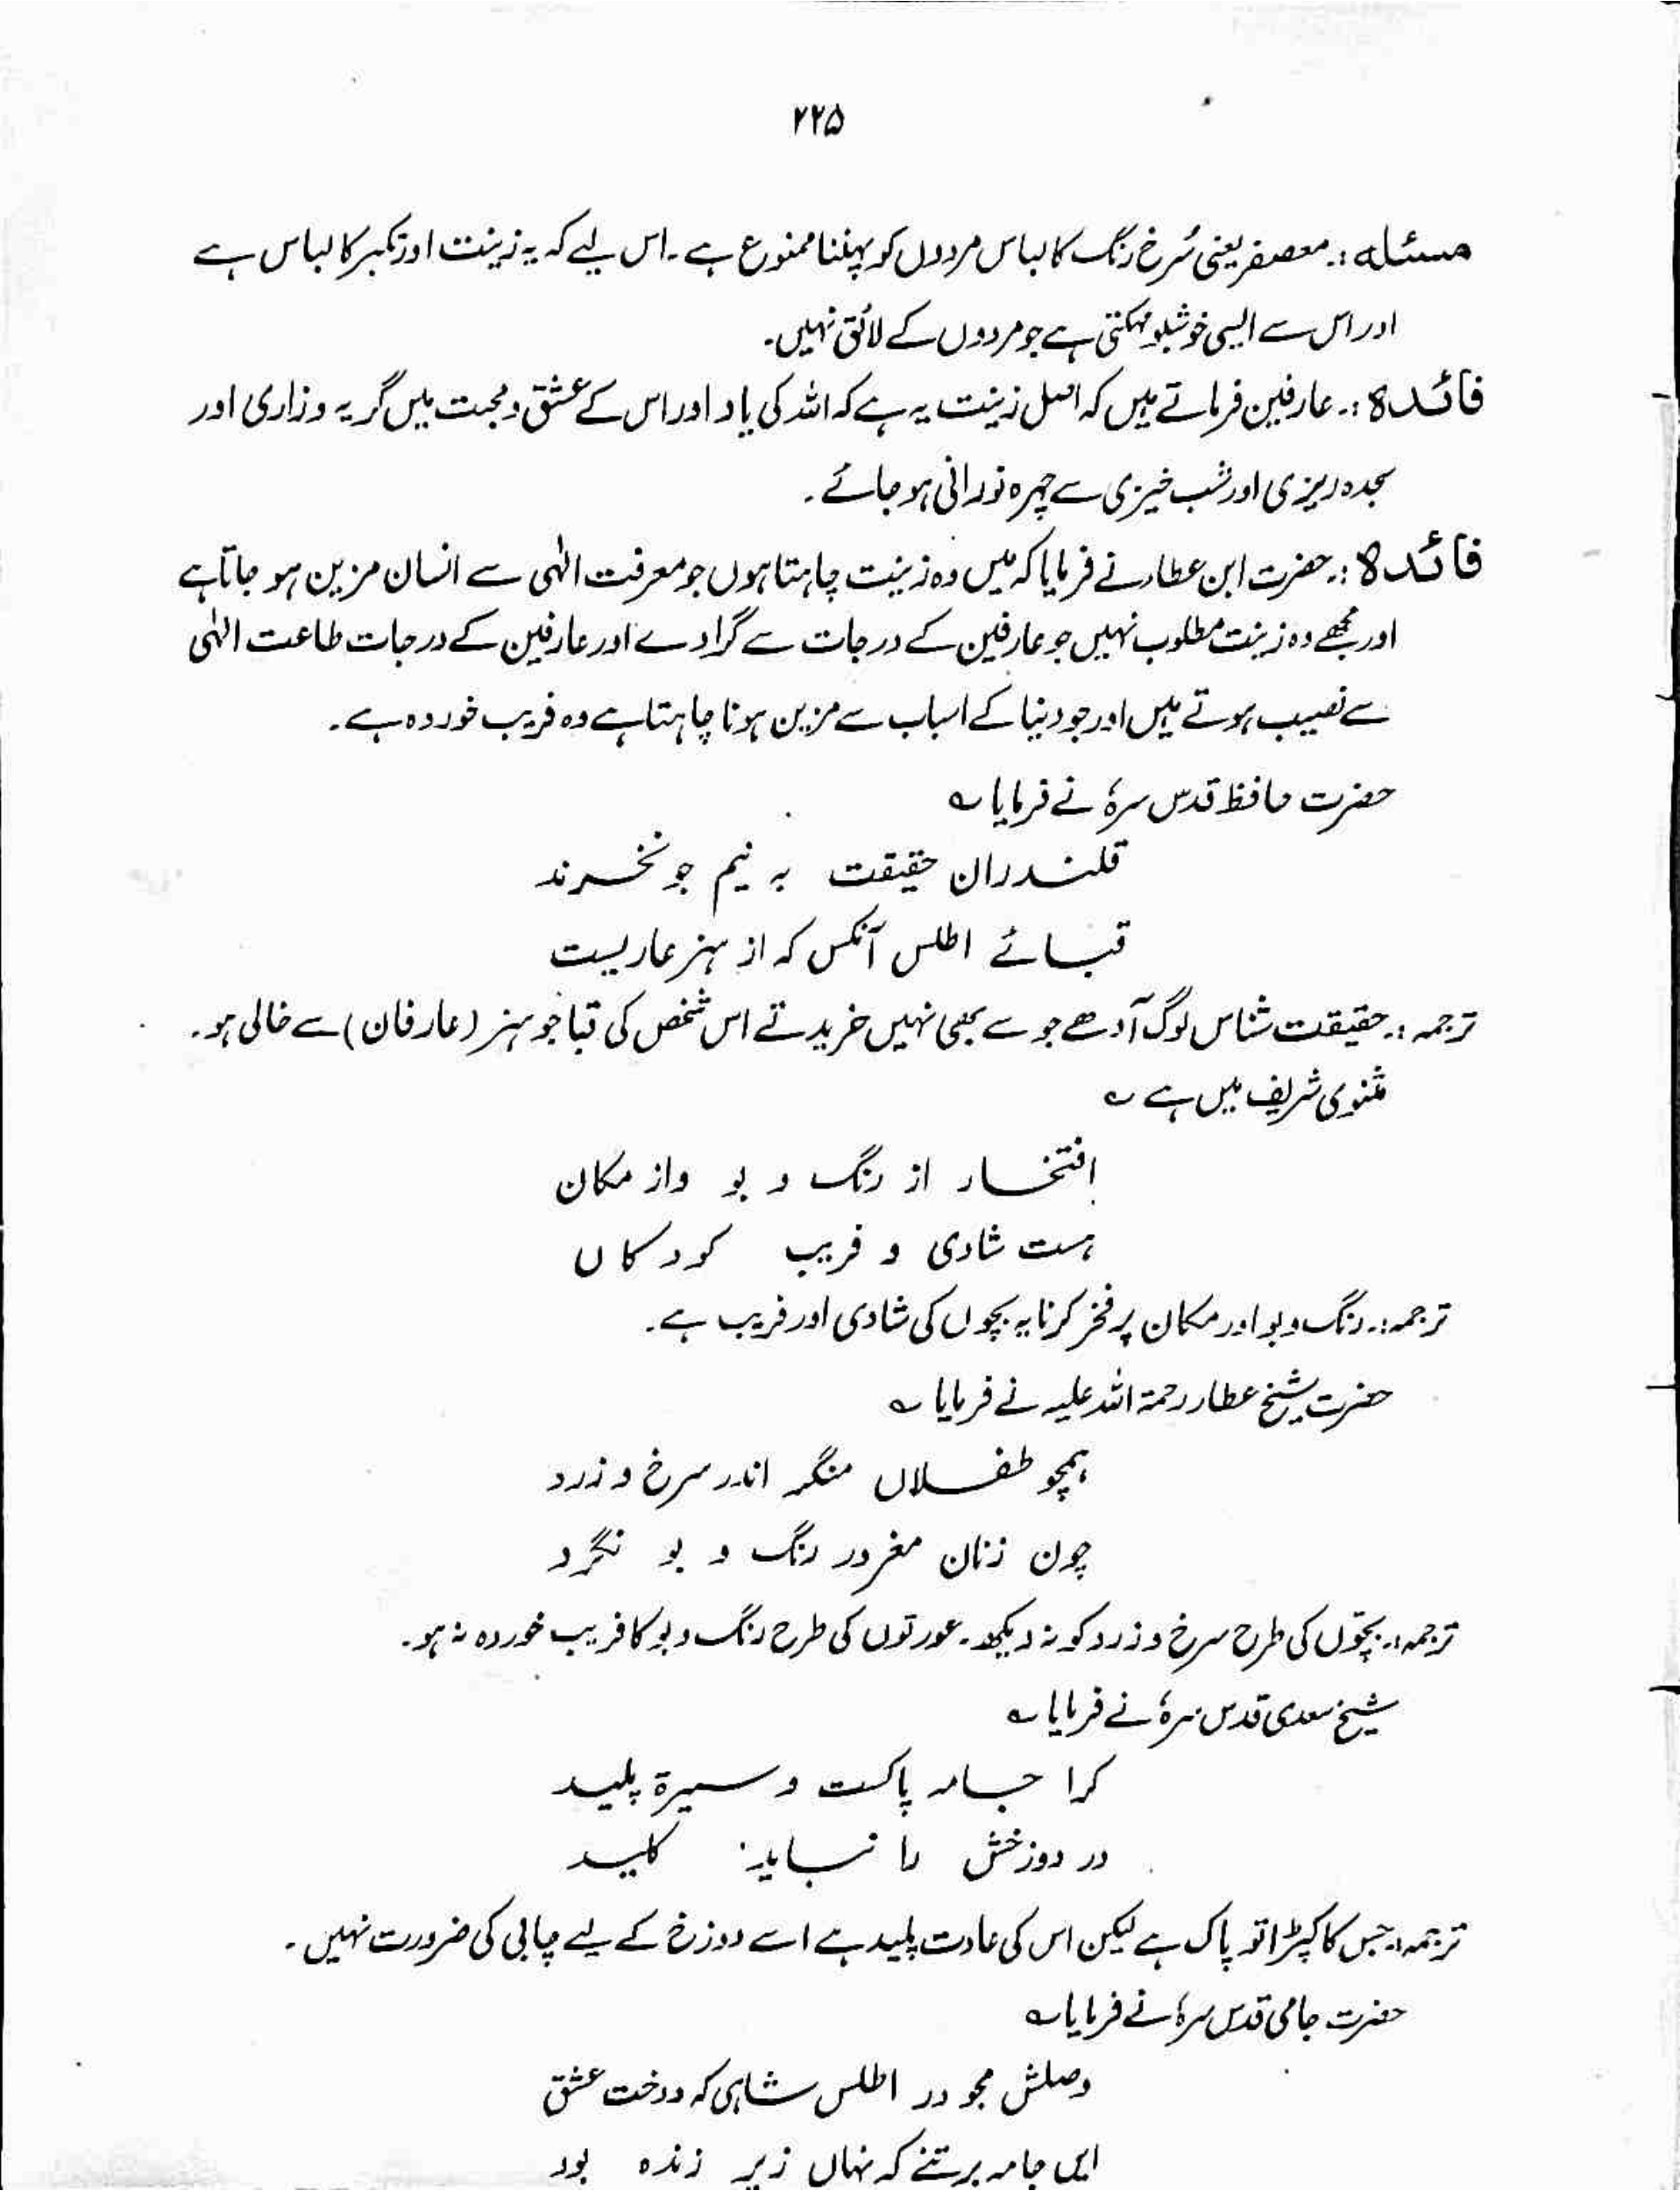 ۲۲۵
مسئلہ :۔ معصفر یعنی سُرخ رنگ کا لباس مردوں کو پہننا ممنوع ہے ۔ اس لیے کہ یہ زینت اور تکبر کا لباس ہے
اور اس سے ایسی خوشبو مہکتی ہے جو مردوں کے لائق نہیں۔
فائدہ :۔ عارفین فرماتے ہیں کہ اصل زینت یہ ہے کہ اللہ کی یاد اور اس کے عشق و محبت میں گریہ و زاری اور
سجدہ ریزی اور شب خیزی سے چہرہ نورانی ہو جائے ۔
فائدہ :۔ حضرت ابن عطار نے فرمایا کہ میں وہ زینت چاہتا ہوں جو معرفت الٰہی سے انسان مزین ہو جاتا ہے
اور مجھے وہ زینت مطلوب نہیں جو عارفین کے درجات سے گرا دے اور عارفین کے درجات طاعت الٰہی
سے نصیب ہوتے ہیں اور جو دنیا کے اسباب سے مزین ہونا چاہتا ہے وہ فریب خوردہ ہے ۔
حضرت حافظ قدس سرہٗ نے فرمایا ؎
قلندران حقیقت بہ نیم جو نخسرند
قبائے اطلس آنکس کہ از ہنر عاریست
ترجمہ :۔ حقیقت شناس لوگ آدھے جو سے بھی نہیں خریدتے اس شخص کی قبا جو ہنر (عارفان) سے خالی ہو۔
مثنوی شریف میں ہے ؎
افتخار از رنگ و بو واز مکان
ہست شادی و فریب کودکاں
ترجمہ:۔ رنگ و بو اور مکان پر فخر کرنا یہ بچوں کی شادی اور فریب ہے۔
حضرت شیخ عطار رحمۃ اللہ علیہ نے فرمایا ؎
ہمچو طفلاں منگر اندر سرخ و زرد
چون زنان مغرور رنگ و بو نگرد
ترجمہ:۔ بچّوں کی طرح سرخ و زرد کو نہ دیکھ ۔ عورتوں کی طرح رنگ و بو کا فریب خوردہ نہ ہو۔
شیخ سعدی قدس سرہٗ نے فرمایا ؎
کرا جامہ پاکست و سیرۃ پلید
در دوزخش را نباید کلید
ترجمہ:۔ جس کا کپڑا تو پاک ہے لیکن اس کی عادت پلید ہے اسے دوزخ کے لیے چابی کی ضرورت نہیں ۔
حضرت جامی قدس سرہٗ نے فرمایا ؎
وصلش مجو در اطلس شاہی کہ درخت عشق
ایں جامہ برتنے کہ نہاں زیر زندہ بود